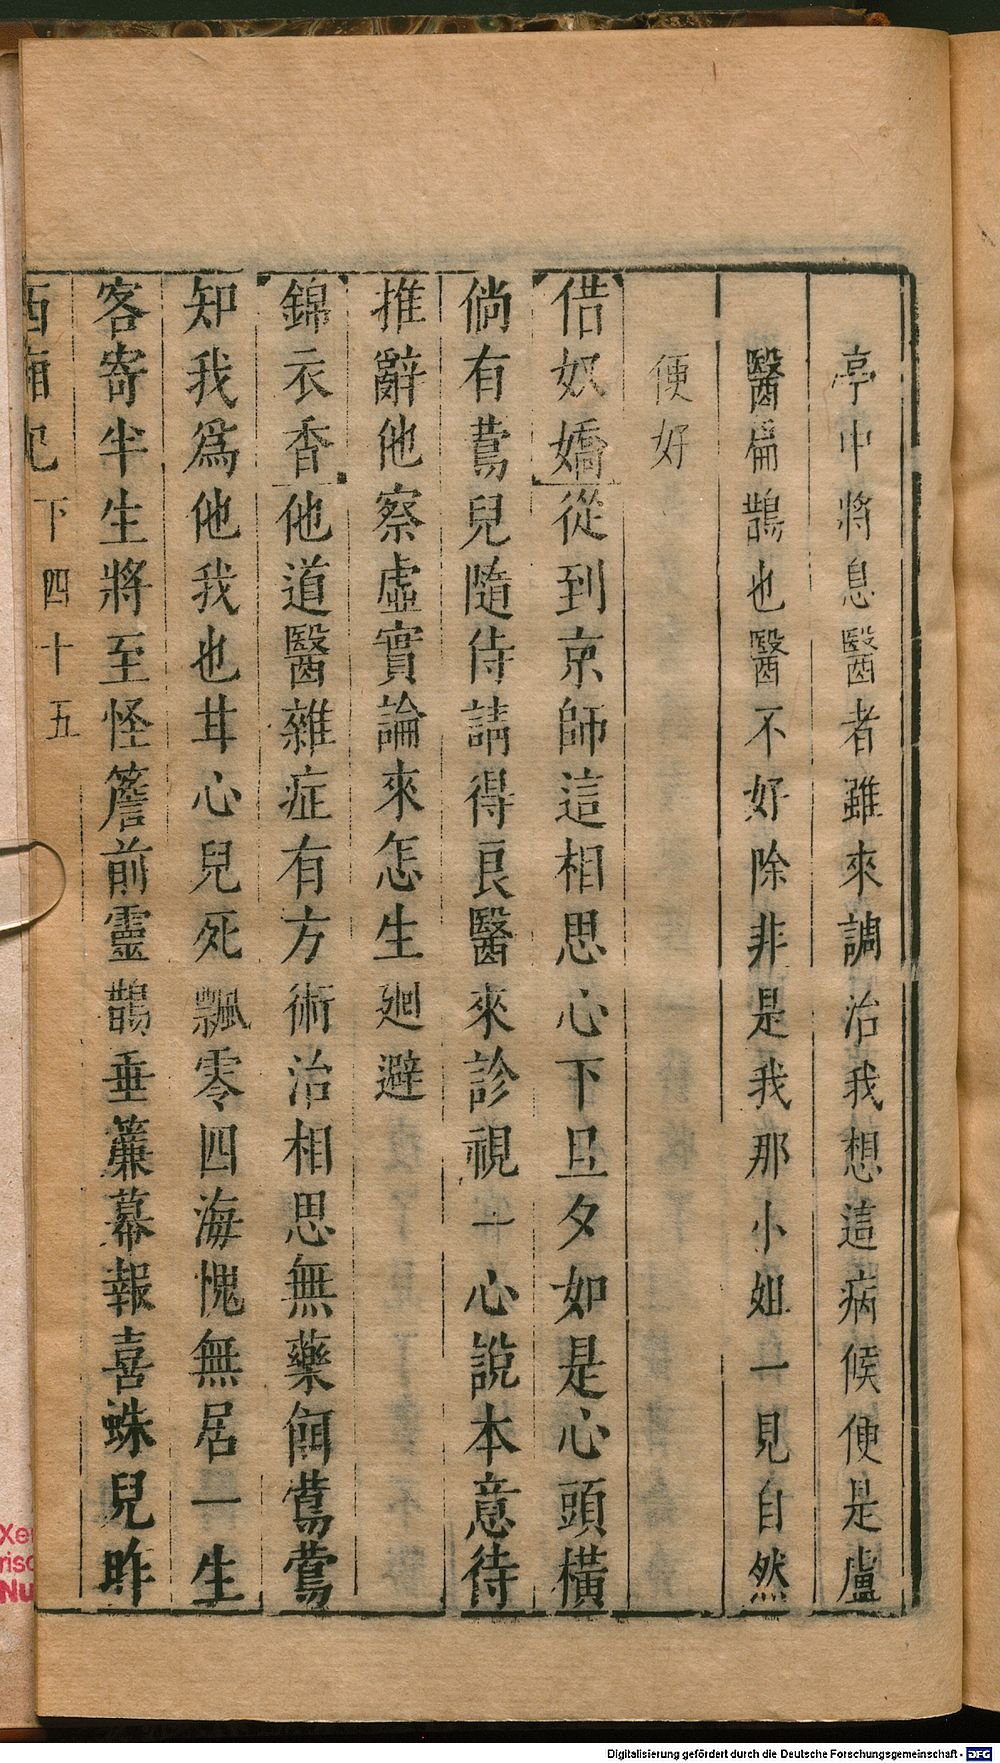 亭中將息醫者雖來調治我想這病候便是盧
醫扁鵲也醫不好除非是我那小姐一見自然
便好
借奴嬌從到京師這相思心下旦夕如是心頭橫
倘有鶯兒隨侍請得良醫來診視一心說本意待
推辭他察虛實論來怎生廻避
錦衣香他道醫雜症有方術治相思無藥餌鶯鶯
知我爲他我也甘心兒死飄零四海愧無居一生
客寄半生將至怪簷前靈鵲垂簾幕報喜蛛兒昨
西廂記 下 四十五
Digitalisierung gefördert durch die Deutsche Forschungsgemeinschaft - DFG